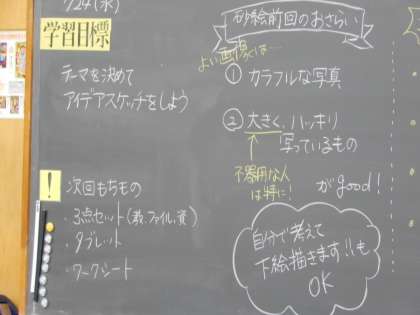 7/24(水)
学習目標
テーマを決めて
アイデアスケッチをしよう
!
次回もちもの
・3点セット(教、ファイル、資)
・タブレット
・ワークシート
砂絵前回のおさらい
よい画像は…
① カラフルな写真
② 大きく、ハッキリ
写っているもの
不器用な人
は特に!
がgood!
自分で考えて
下絵描きます!!も
OK